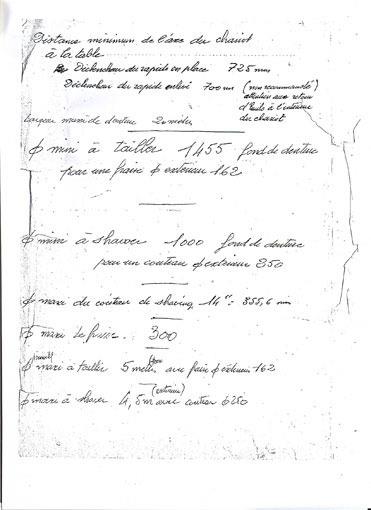 Distance minimum de l'axe du chariot
à la table
Déclencheur du rapide en place 725 mm
Déclencheur du rapide enlevé 700 mm (non recommandé)
attention aux retours
d'huile à l'extérieur
du chariot
Largeur maxi de denture 2 mètres
ϕ mini à tailler 1455 fond de denture
pour une fraise ϕ extérieur 162
ϕ mini à shaver 1000 fond de denture
pour un couteau ϕ extérieur 250
ϕ maxi du couteau de shaving 14" = 355,6 mm
ϕ maxi de fraise 300
ϕ maxi à tailler 5 mètres avec fraise ϕ extérieur 162
ϕ maxi à shaver 4,5m (extérieur) avec couteau 250